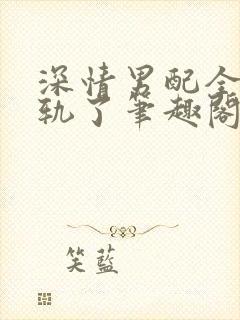 深情男配全
轨了笔趣阁
笑蓝